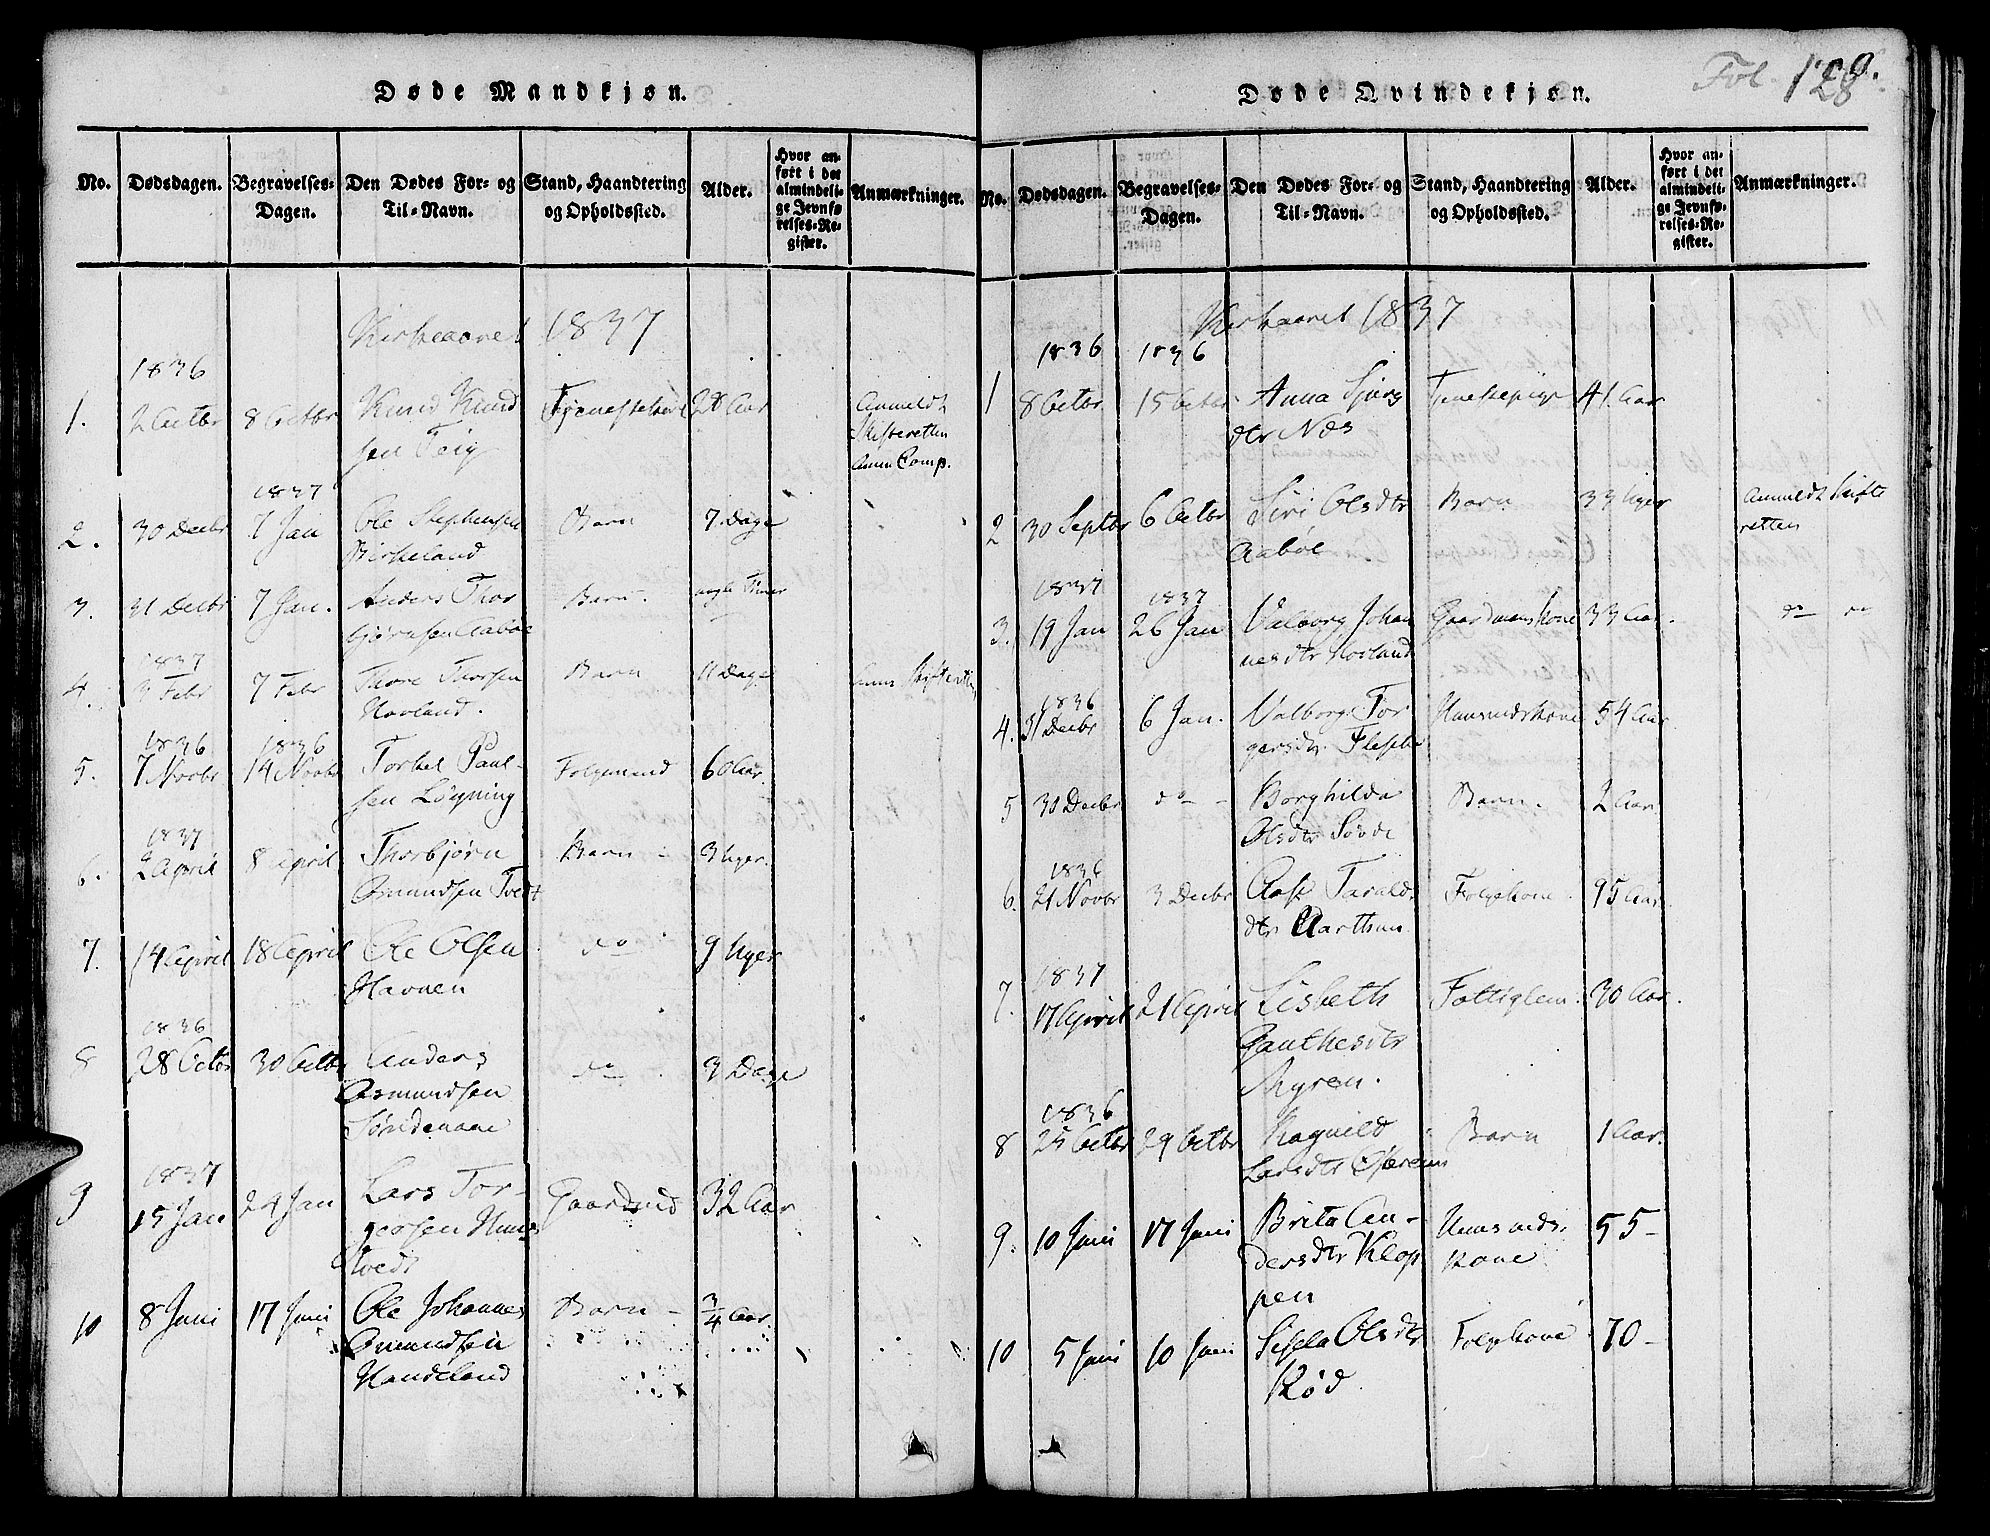 Døde Mandkjøn.
No. Dødsdagen. Begravelses-Dagen. Den Dødes For- og Til-Navn. Stand, Haandtering og Opholdssted. Alder. Hvor anført i det almindelige Jevnførelses-Register. Anmærkninger.
Kirkeaaret 1837
1836
1. 2 Octbr 8 Octbr Knud Knud Tjenestekarl 28 Aar Anmeldt
sen Teig Skifteretten
1837
2. 30 Decbr 7 Jan Ole Stephensen Barn 7 Dage
Birkeland
3. 31 Decbr 7 Jan. Anders Thor Barn nogle Timer
bjørnsen Aabøe
1837
4. 3 Febr 7 Febr Thore Thorsen Barn 11 Dage Anm Skifteretten
Hovland.
1836 1836
5. 7 Novbr 14 Novbr Torkel Paul- Folgemand 60 Aar.
sen Løyning
1837
6. 2 April 8 April Thorbjørn Barn 3 Uger.
Osmundsen Tvedt
7. 14 April 18 April Ole Olsen do 9 Uger
Havnen
1836
8 28 Octbr 30 Octbr Anders do 3 Dage
Osmundsen
1837
9 15 Jan 24 Jan Lars Tor- Gaardmd 32 Aar
tvedt
10 8 Juni 17 Juni Ole Johannes Barn - 3/4 Aar.
Osmundsen
Handeland
Døde Qvindekjøn.
Fol. 128.
No. Dødsdagen. Begravelses-Dagen. Den Dødes For- og Til-Navn. Stand, Haandtering og Opholdssted. Alder. Hvor anført i det almindelige Jevnførelses-Register. Anmærkninger.
Kirkaaret 1837
1836 1836
1 8 Octbr 15 Octbr Anna Sjurs Tjenestepige 41 Aar
dtr Næs
2 30 Septbr 6 Octbr Siri Olsdtr Barn 33 Uger Anmeldt Skifte
Aabøe retten
1837 1837
3. 19 Jan 26 Jan Valborg Johan Gaardmandskone 33 Aar. do do
nesdtr Hovland
1836
4. 31 Decbr 6 Jan. Valborg Tor Huusmdskone 54 Aar
gersdtr
5 30 Decbr do - Borghilda Barn. 2 Aar
Olsdtr Søvde
1836
6. 21 Novbr 3 Decbr Aase Tarald Folgekone 95 Aar.
dtr
1837
7. 17 April 21 April Lisbeth Fattiglem. 30 Aar.
Gauthesdtr
Myren.
1836
8 25 Octbr 29 Octbr Ragnild Barn 1 Aar.
Larsdtr
9. 10 Juni 17 Juni Brita An- Huusmds- 55 -
dersdtr Klop kone
pen
10 5 Juni 10 Juni Sissela Olsdtr Folgekone 70 -
Rød